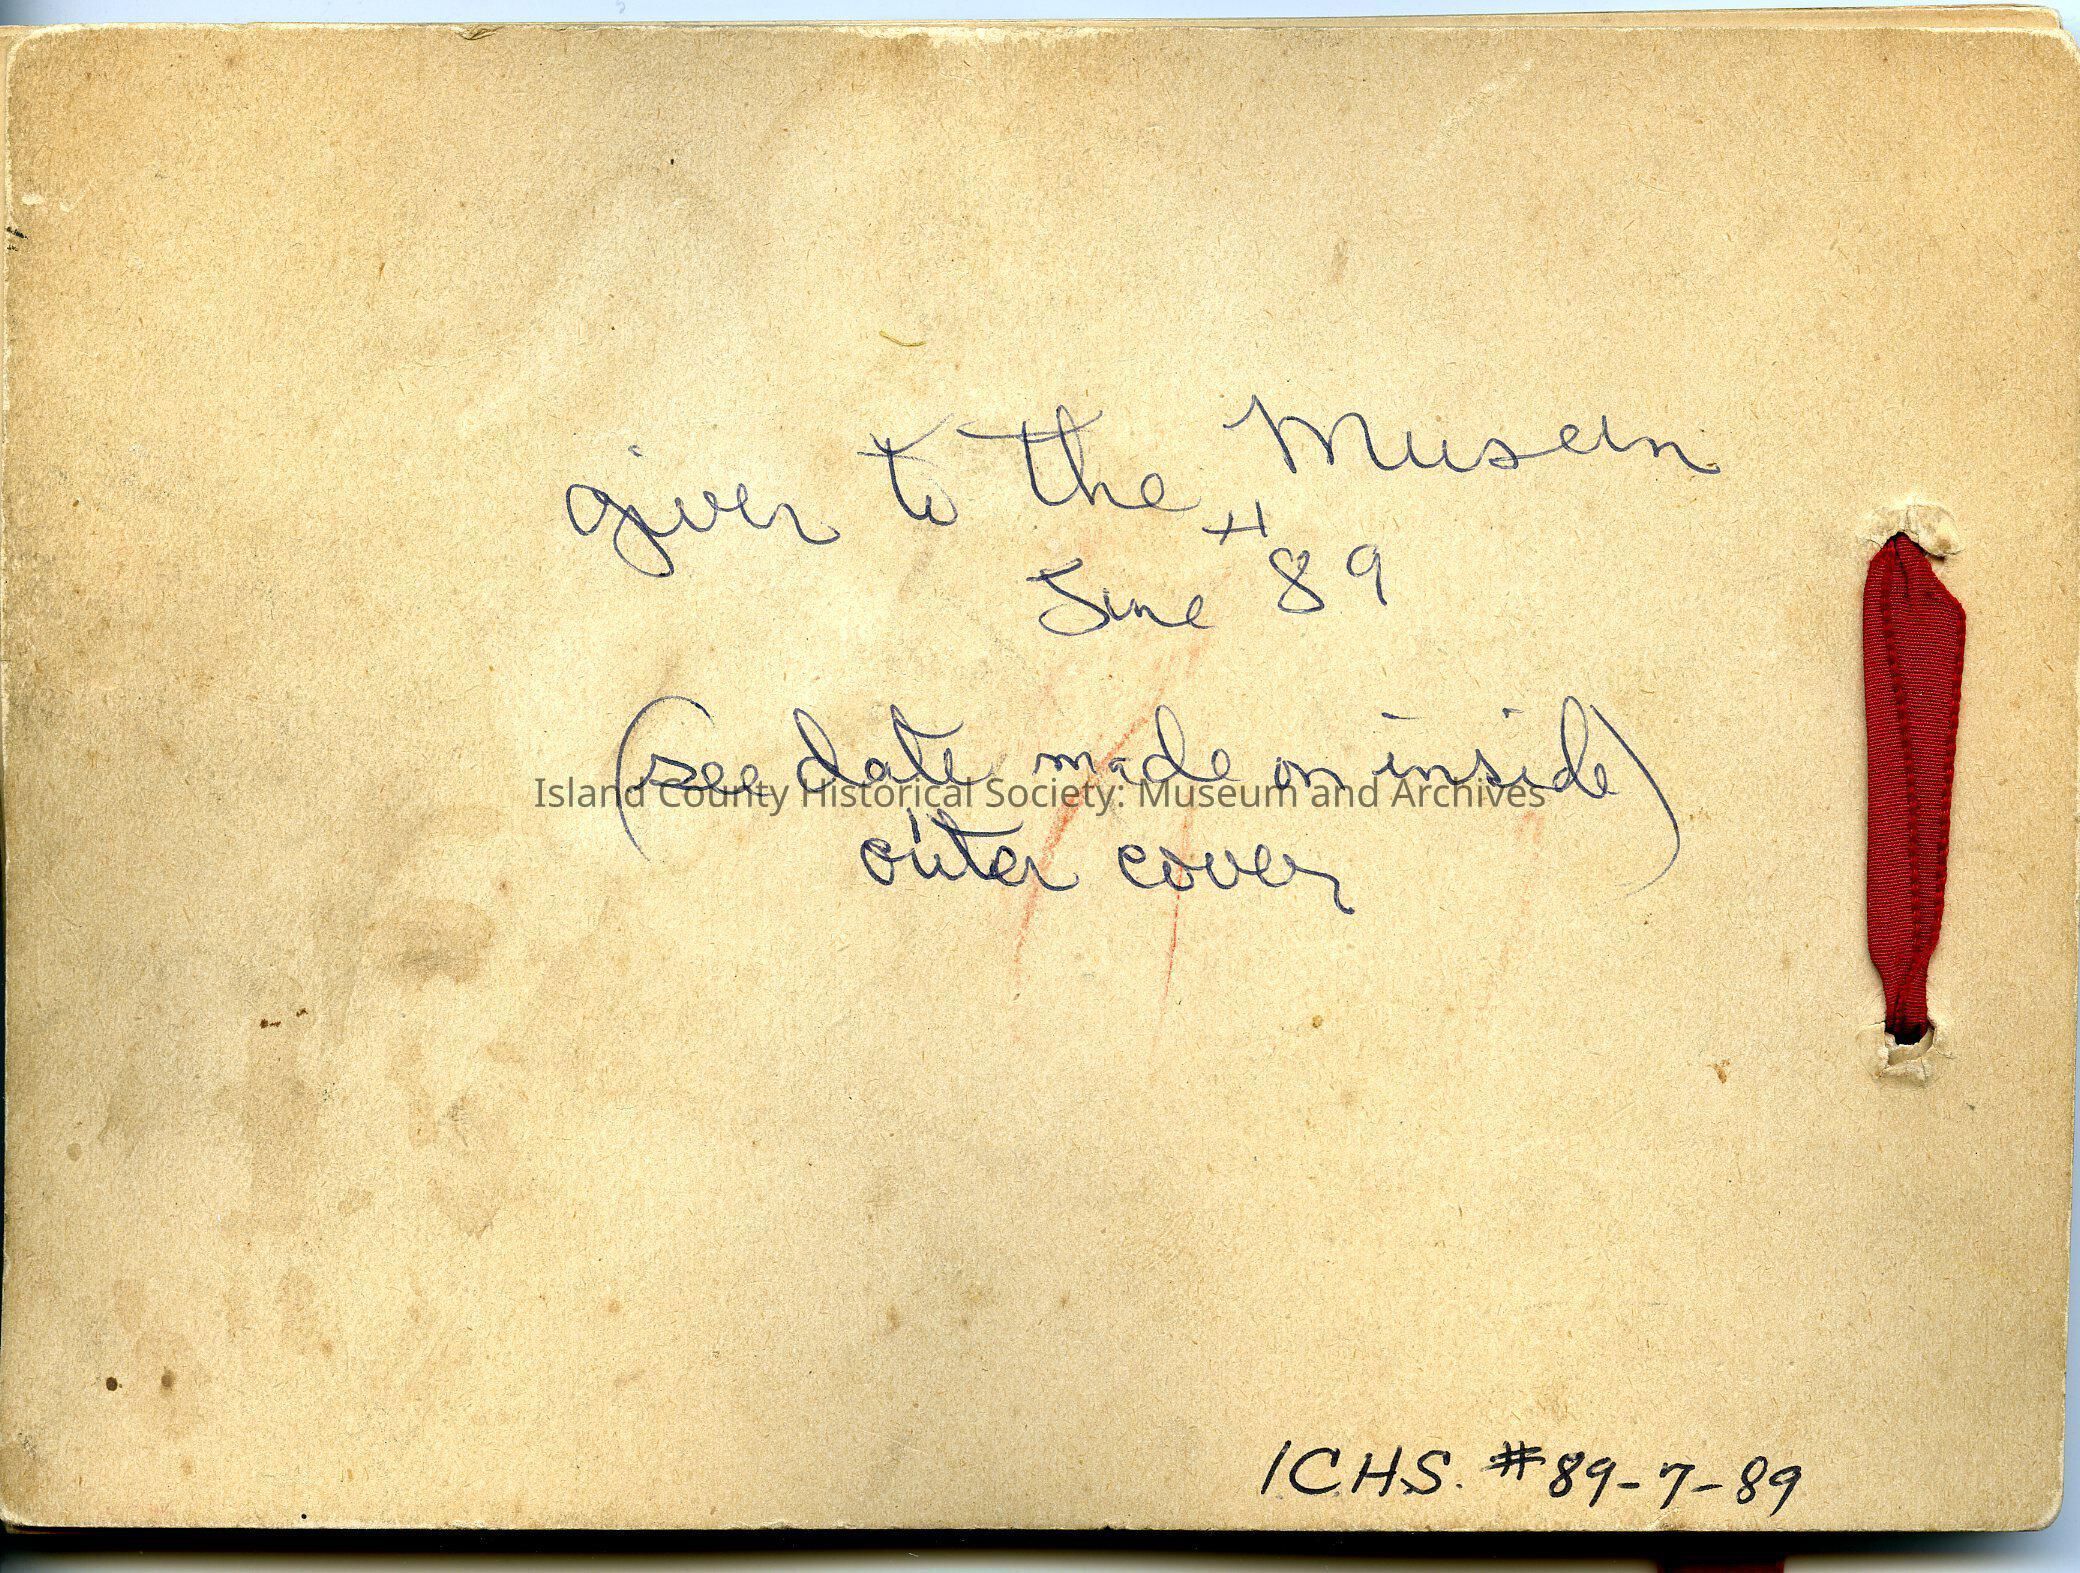 given to the Museum
June 89
(see date made on inside)
outer cover
Island County Historical Society: Museum and Archives
ICHS. #89-7-89